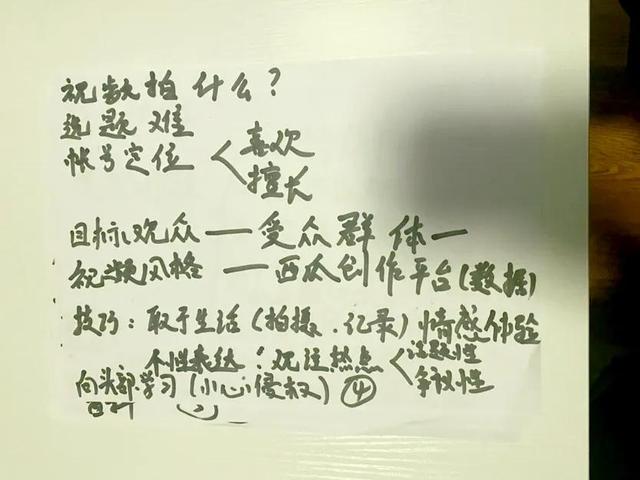 视频拍什么？
选题难
帐号定位 喜欢
擅长
目标观众 — 受众群体 —
视频风格 — 西瓜创作平台(数据)
技巧：取于生活(拍摄、记录)情感体验
个性表达！观注热点 话题性
争议性
向头部学习(小心侵权)④